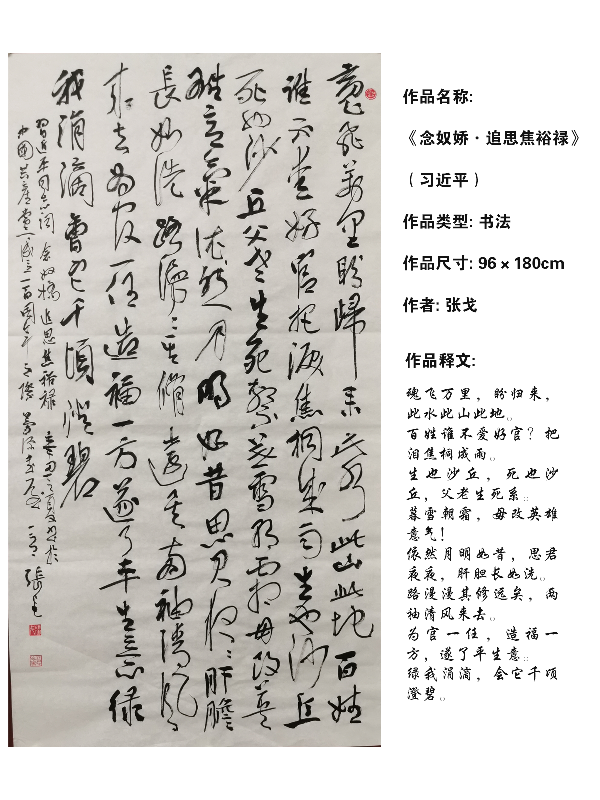 魂飛萬里盼歸来此水此山此地百姓
誰不愛好官把淚焦桐成雨生也沙丘
死也沙丘父老生死繫暮雪朝霜毋改英
雄意氣依然月明如昔思君夜〻肝膽
長如洗路漫〻其修遠矣兩袖清風
来去為官一任造福一方遂了平生意绿
我涓滴會它千頃澄碧
習近平同志詞念奴嬌追思焦裕禄
中國共產黨成立一百周年之際
張戈
作品名称:
《念奴娇·追思焦裕禄》
（习近平）
作品类型: 书法
作品尺寸: 96×180cm
作者: 张戈
作品释文:
魂飞万里，盼归来，
此水此山此地。
百姓谁不爱好官？把
泪焦桐成雨。
生也沙丘，死也沙
丘，父老生死系。
暮雪朝霜，毋改英雄
意气！
依然月明如昔，思君
夜夜，肝胆长如洗。
路漫漫其修远矣，两
袖清风来去。
为官一任，造福一
方，遂了平生意。
绿我涓滴，会它千顷
澄碧。